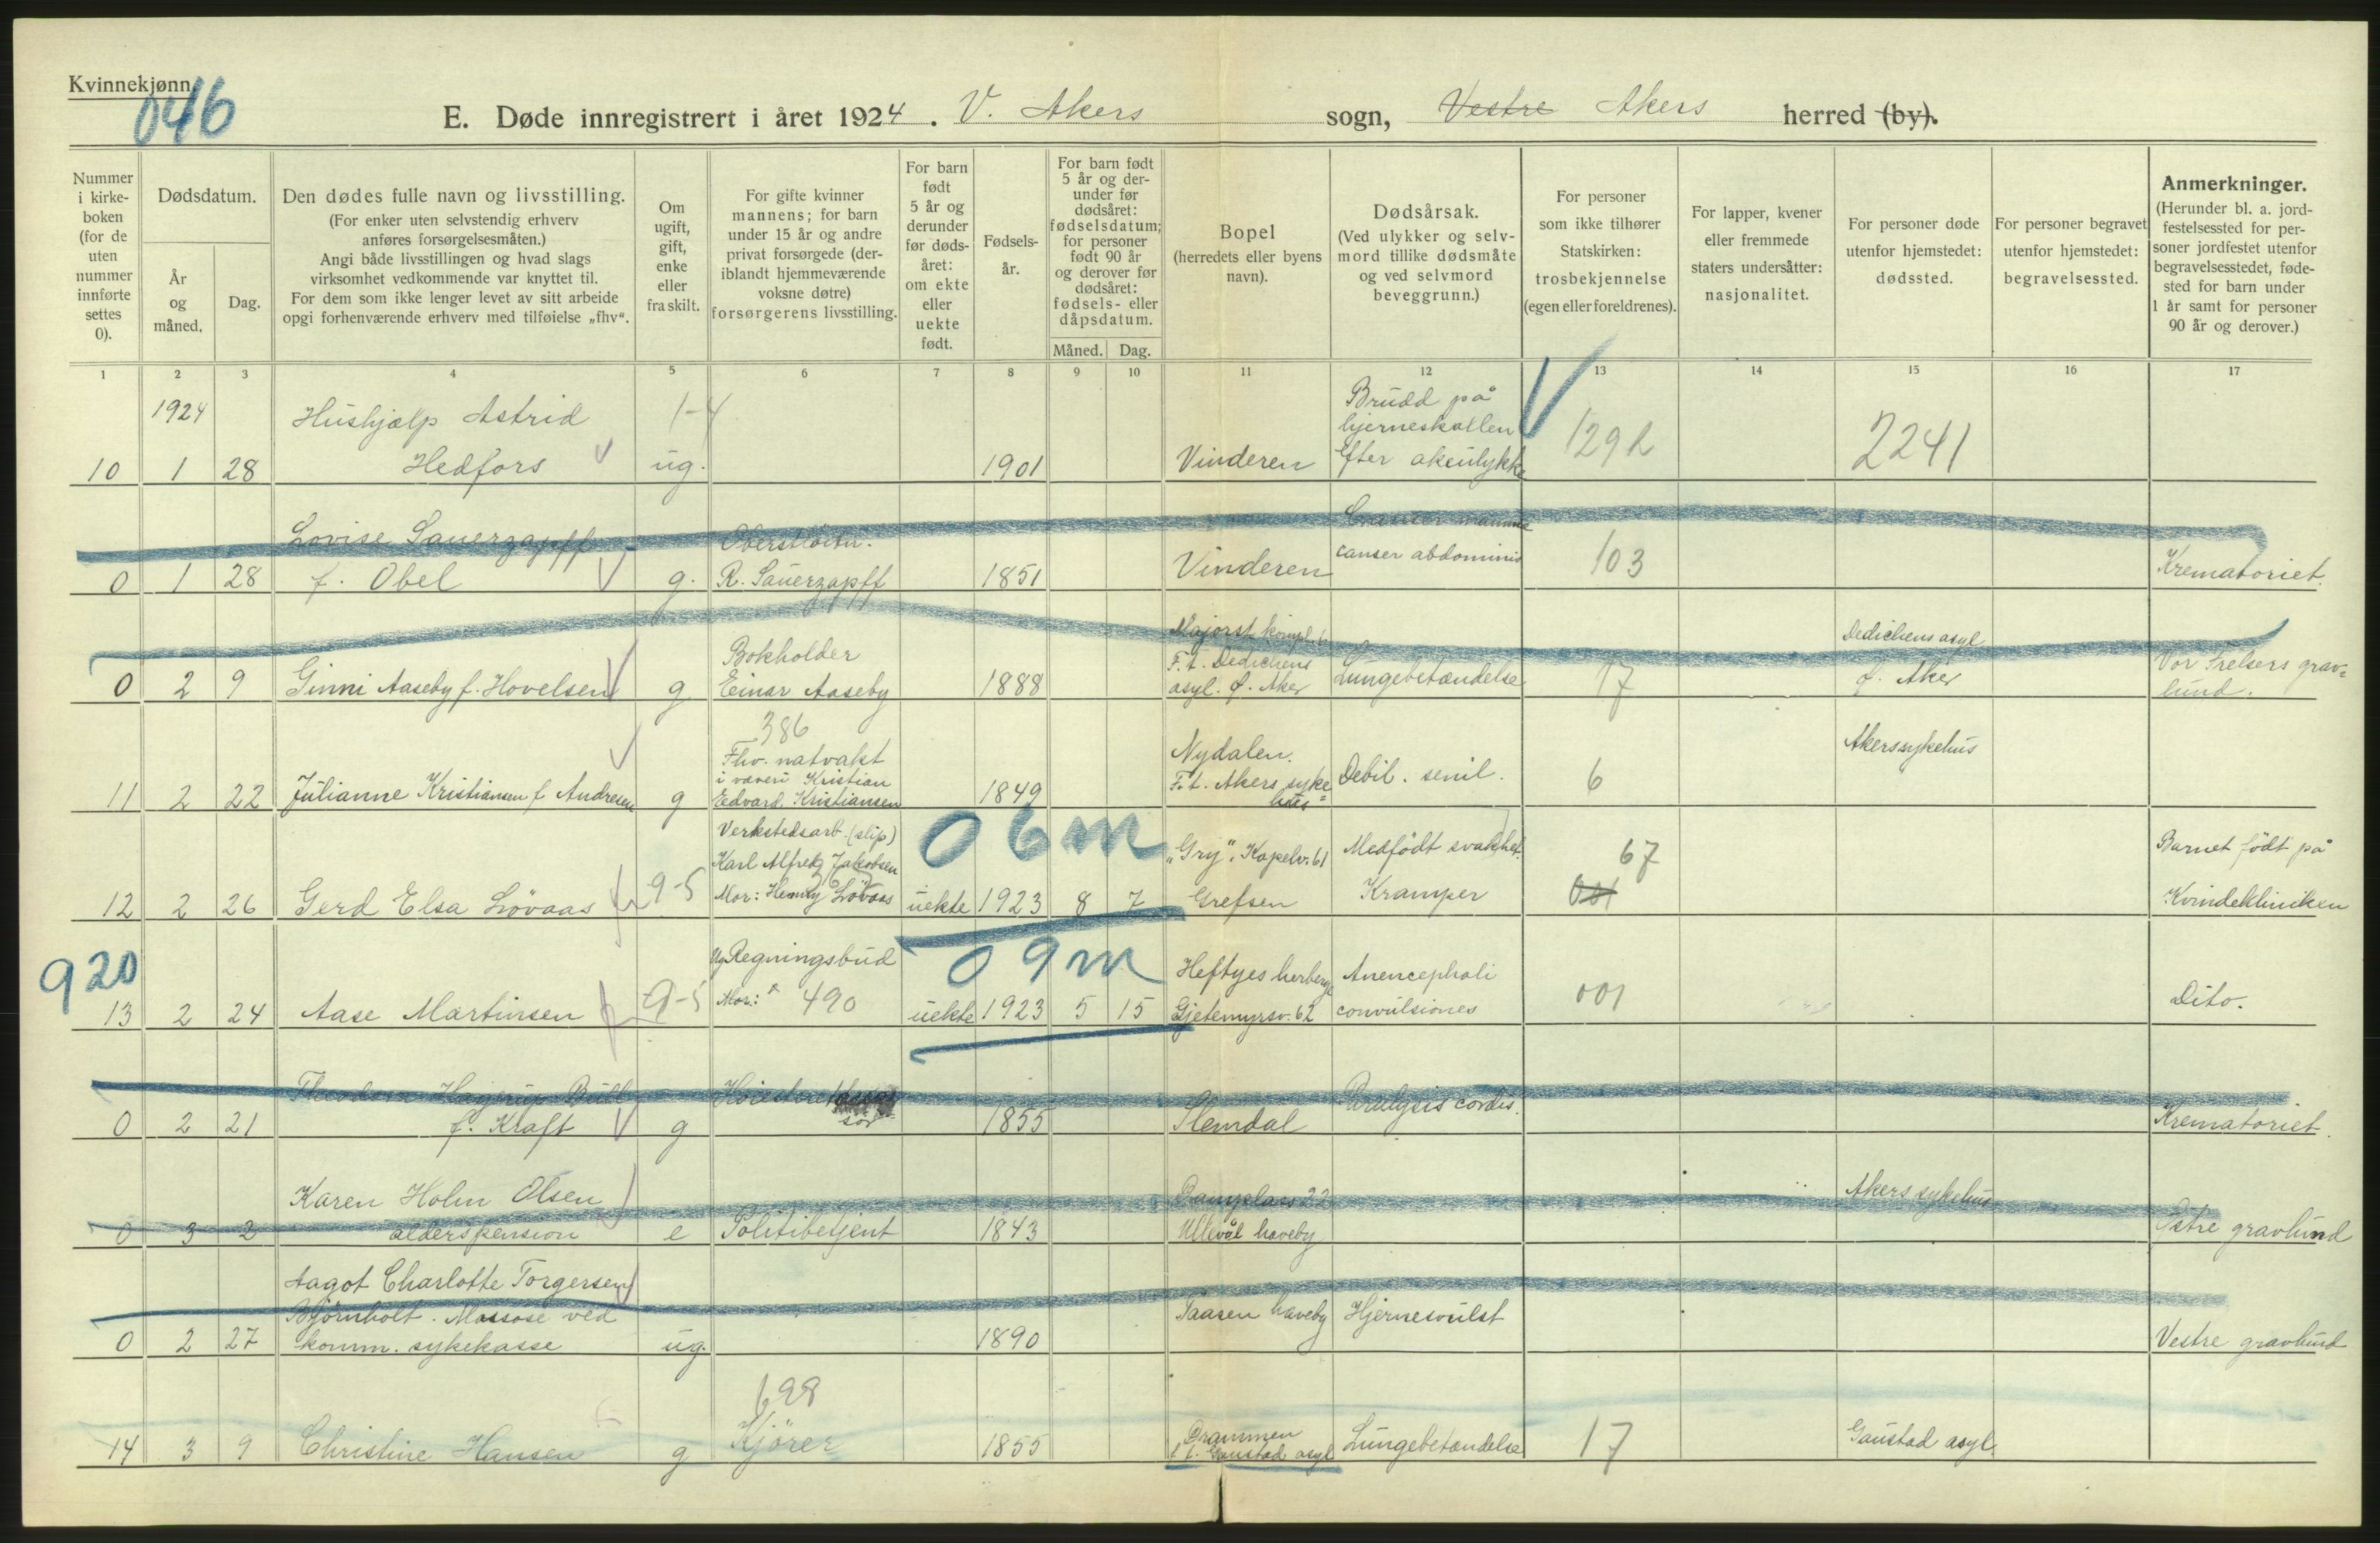 Kvinnekjønn.
046
E. Døde innregistrert i året 1924. V. Akers sogn, Vestre Akers herred (by).
Nummer i kirke-boken (for de uten nummer innførte settes 0).
Dødsdatum.
År og måned.
Dag.
Den dødes fulle navn og livsstilling.
(For enker uten selvstendig erhverv anføres forsørgelsesmåten.)
Angi både livsstillingen og hvad slags virksomhet vedkommende var knyttet til.
For dem som ikke lenger levet av sitt arbeide opgi forhenværende erhverv med tilføielse „fhv“.
Om ugift, gift, enke eller fraskilt.
For gifte kvinner mannens; for barn under 15 år og andre privat forsørgede (der-iblandt hjemmeværende voksne døtre) forsørgerens livsstilling.
For barn født 5 år og derunder før døds-året: om ekte eller uekte født.
Fødsels-år.
For barn født 5 år og der-under før dødsåret: fødselsdatum; for personer født 90 år og derover før dødsåret: fødsels- eller dåpsdatum.
Måned. Dag.
Bopel (herredets eller byens navn).
Dødsårsak. (Ved ulykker og selv-mord tillike dødsmåte og ved selvmord beveggrunn.)
For personer som ikke tilhører Statskirken: trosbekjennelse (egen eller foreldrenes).
For lapper, kvener eller fremmede staters undersåtter: nasjonalitet.
For personer døde utenfor hjemstedet: dødssted.
For personer begravet utenfor hjemstedet: begravelsessted.
Anmerkninger. (Herunder bl. a. jord-festelsessted for per-soner jordfestet utenfor begravelsesstedet, føde-sted for barn under 1 år samt for personer 90 år og derover.)
1 2 3 4 5 6 7 8 9 10 11 12 13 14 15 16 17
1924 Hushjælp Astrid 1-4 Brudd på
hjerneskallen 129 2241
10 1 28 Hedfors ug. 1901 Vinderen efter akeulykke
Lovise Sauerzapff Oberstløitn.
canser abdominis 103
0 1 28 f. Obel g. R. Sauerzapff 1851 Vinderen Krematoriet.
Majorst. Dedichens asyl
Bokholder F. t. Dedichens Vor Frelsers grav-
0 2 9 Ginni Aaseby f. Hovelsen g Einar Aaseby 1888 asyl. Ø. Aker Lungebetændelse 17 Ø. Aker lund.
386
Fhv. natvakt Nydalen. Akers sykehus
i væveri Kristian
11 2 22 Julianne Kristiansen f. Andresen g Edvard Kristiansen 1849 F. t. Akers syke- Debil. senil. 6
hus
Verkstedsarb. (slip) 06m
Karl Alfred Jakobsen „Gry“, Kapelv. 61 Medfødt svakhet. 67 Barnet født på
12 2 26 Gerd Elsa Løvaas 9-5 Mor: Henny Løvaas uekte 1923 8 7 Grefsen Kramper 001 Kvindeklinikken
920 Ug Regningsbud 09m Heftyes herberge Anencephali
13 2 24 Aase Martinsen 9-5 Mor: 490 uekte 1923 5 15 Gjetemyrsv. 62 convulsiones 001 Dito.
Theodora Hagerup Bull Paralysis cordis.
0 2 21 f. Kraft g 1855 Slemdal Krematoriet.
Karen Holm Olsen Damplass 22 Akers sykehus
0 3 2 alderspension e Politibetjent 1843 Ullevål haveby Østre gravlund
Aagot Charlotte Torgersen
Bjørnholt. Massøse ved Taasen haveby Hjernesvulst
0 2 27 komm. sykekasse ug. 1890 Vestre gravlund
698
Drammen
14 3 9 Christine Hansen g Kjører 1855 f. t. Gaustad asyl Lungebetændelse 17 Gaustad asyl.